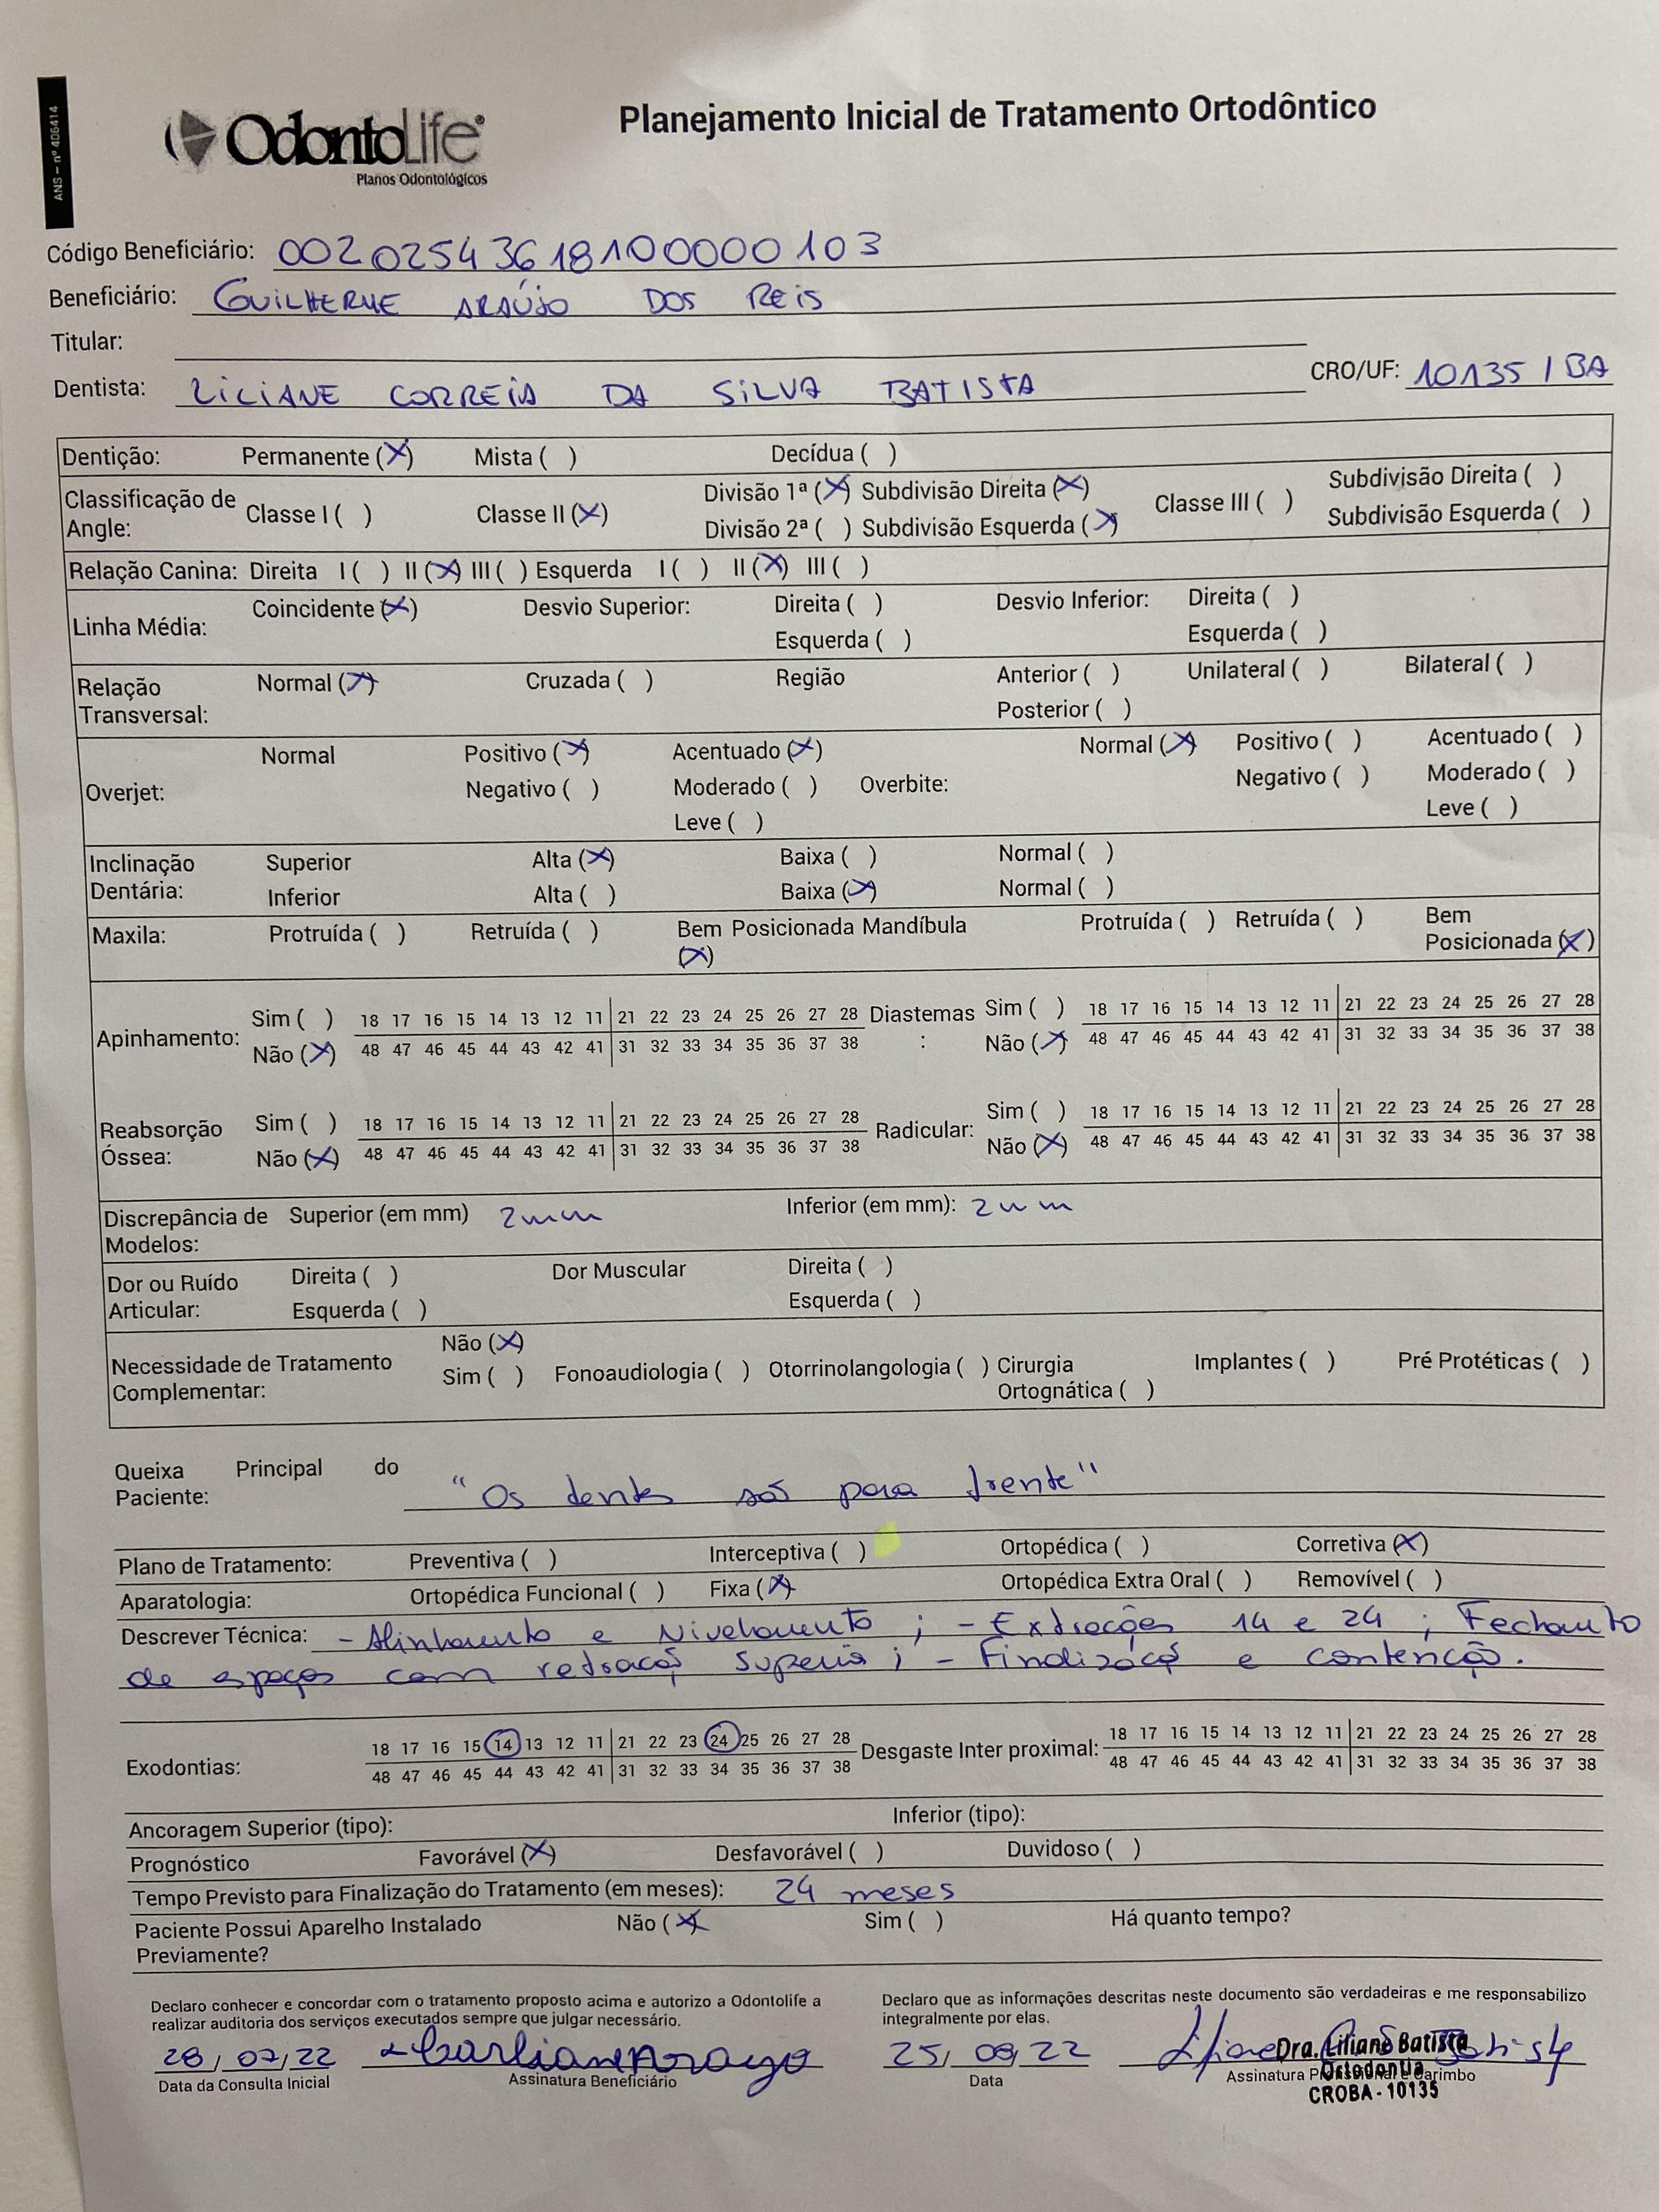 ANS – nº 406414
OdontoLife®
Planos Odontológicos
Planejamento Inicial de Tratamento Ortodôntico
Código Beneficiário: 00202543618100000103
Beneficiário: GUILHERME ARAÚJO DOS REIS
Titular:
Dentista: LILIANE CORREIA DA SILVA BATISTA CRO/UF: 10135 / BA
Dentição: Permanente (X) Mista ( ) Decídua ( )
Classificação de Angle: Classe I ( ) Classe II (X) Divisão 1ª (X) Subdivisão Direita (X) Classe III ( ) Subdivisão Direita ( )
Divisão 2ª ( ) Subdivisão Esquerda (X) Subdivisão Esquerda ( )
Relação Canina: Direita I ( ) II (X) III ( ) Esquerda I ( ) II (X) III ( )
Linha Média: Coincidente (X) Desvio Superior: Direita ( ) Desvio Inferior: Direita ( )
Esquerda ( ) Esquerda ( )
Relação Transversal: Normal (X) Cruzada ( ) Região Anterior ( ) Unilateral ( ) Bilateral ( )
Posterior ( )
Overjet: Normal Positivo (X) Acentuado (X) Overbite: Normal (X) Positivo ( ) Acentuado ( )
Negativo ( ) Moderado ( ) Negativo ( ) Moderado ( )
Leve ( ) Leve ( )
Inclinação Dentária: Superior Alta (X) Baixa ( ) Normal ( )
Inferior Alta ( ) Baixa (X) Normal ( )
Maxila: Protruída ( ) Retruída ( ) Bem Posicionada (X) Mandíbula Protruída ( ) Retruída ( ) Bem Posicionada (X)
Apinhamento: Sim ( ) 18 17 16 15 14 13 12 11 21 22 23 24 25 26 27 28 Diastemas : Sim ( ) 18 17 16 15 14 13 12 11 21 22 23 24 25 26 27 28
Não (X) 48 47 46 45 44 43 42 41 31 32 33 34 35 36 37 38 Não (X) 48 47 46 45 44 43 42 41 31 32 33 34 35 36 37 38
Reabsorção Óssea: Sim ( ) 18 17 16 15 14 13 12 11 21 22 23 24 25 26 27 28 Radicular: Sim ( ) 18 17 16 15 14 13 12 11 21 22 23 24 25 26 27 28
Não (X) 48 47 46 45 44 43 42 41 31 32 33 34 35 36 37 38 Não (X) 48 47 46 45 44 43 42 41 31 32 33 34 35 36 37 38
Discrepância de Modelos: Superior (em mm) 2mm Inferior (em mm): 2mm
Dor ou Ruído Articular: Direita ( ) Dor Muscular Direita ( )
Esquerda ( ) Esquerda ( )
Necessidade de Tratamento Complementar: Não (X)
Sim ( ) Fonoaudiologia ( ) Otorrinolangologia ( ) Cirurgia Ortognática ( ) Implantes ( ) Pré Protéticas ( )
Queixa Principal do Paciente: "Os dentes são para frente"
Plano de Tratamento: Preventiva ( ) Interceptiva ( ) Ortopédica ( ) Corretiva (X)
Aparatologia: Ortopédica Funcional ( ) Fixa (X) Ortopédica Extra Oral ( ) Removível ( )
Descrever Técnica: - Alinhamento e Nivelamento ; - Extrações 14 e 24 ; Fechamento
de espaços com retração superior ; - Finalização e contenção.
Exodontias: 18 17 16 15 14 13 12 11 21 22 23 24 25 26 27 28 Desgaste Inter proximal: 18 17 16 15 14 13 12 11 21 22 23 24 25 26 27 28
48 47 46 45 44 43 42 41 31 32 33 34 35 36 37 38 48 47 46 45 44 43 42 41 31 32 33 34 35 36 37 38
Ancoragem Superior (tipo): Inferior (tipo):
Prognóstico Favorável (X) Desfavorável ( ) Duvidoso ( )
Tempo Previsto para Finalização do Tratamento (em meses): 24 meses
Paciente Possui Aparelho Instalado Previamente? Não (X) Sim ( ) Há quanto tempo?
Declaro conhecer e concordar com o tratamento proposto acima e autorizo a Odontolife a
realizar auditoria dos serviços executados sempre que julgar necessário.
Declaro que as informações descritas neste documento são verdadeiras e me responsabilizo
integralmente por elas.
28/07/22
Data da Consulta Inicial
Assinatura Beneficiário
25/09/22
Data
Assinatura Profissional e Carimbo
Dra. Liliane Batista
Ortodontia
CROBA - 10135